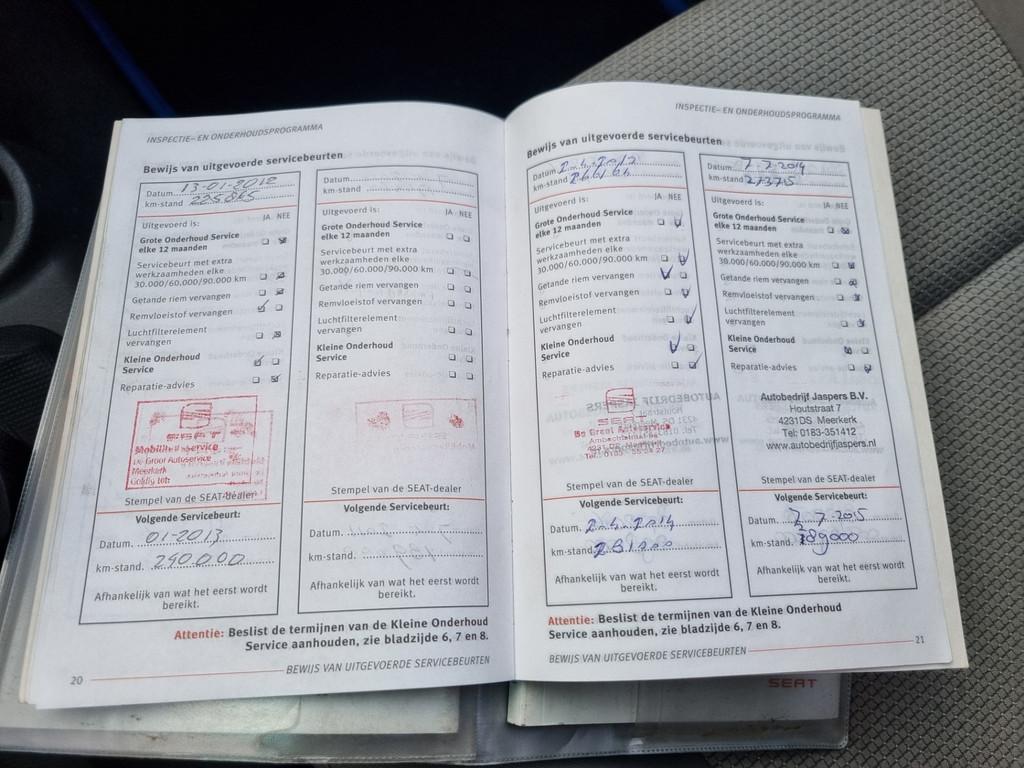 INSPECTIE- EN ONDERHOUDSPROGRAMMA
Bewijs van uitgevoerde servicebeurten
Datum 13-01-2012
km-stand 225865
Uitgevoerd is: JA NEE
Grote Onderhoud Service
elke 12 maanden
Servicebeurt met extra
werkzaamheden elke
30.000/60.000/90.000 km
Getande riem vervangen
Remvloeistof vervangen
Luchtfilterelement
vervangen
Kleine Onderhoud
Service
Reparatie-advies
SEAT
Mobiliteitsservice
De Groot Autoservice
Meerkerk
Geldig tot:
Stempel van de SEAT-dealer
Volgende Servicebeurt:
Datum. 01-2013
km-stand. 240.000
Afhankelijk van wat het eerst wordt
bereikt.
Datum
km-stand
Uitgevoerd is: JA NEE
Grote Onderhoud Service
elke 12 maanden
Servicebeurt met extra
werkzaamheden elke
30.000/60.000/90.000 km
Getande riem vervangen
Remvloeistof vervangen
Luchtfilterelement
vervangen
Kleine Onderhoud
Service
Reparatie-advies
Stempel van de SEAT-dealer
Volgende Servicebeurt:
Datum.
km-stand.
Afhankelijk van wat het eerst wordt
bereikt.
Attentie: Beslist de termijnen van de Kleine Onderhoud
Service aanhouden, zie bladzijde 6, 7 en 8.
20
BEWIJS VAN UITGEVOERDE SERVICEBEURTEN
INSPECTIE- EN ONDERHOUDSPROGRAMMA
Bewijs van uitgevoerde servicebeurten
Datum
km-stand
Uitgevoerd is: JA NEE
Grote Onderhoud Service
elke 12 maanden
Servicebeurt met extra
werkzaamheden elke
30.000/60.000/90.000 km
Getande riem vervangen
Remvloeistof vervangen
Luchtfilterelement
vervangen
Kleine Onderhoud
Service
Reparatie-advies
SEAT
De Groot Autoservice
Stempel van de SEAT-dealer
Volgende Servicebeurt:
Datum. 2-4-2014
km-stand. 281000
Afhankelijk van wat het eerst wordt
bereikt.
Datum 7-7-2014
km-stand 27375
Uitgevoerd is: JA NEE
Grote Onderhoud Service
elke 12 maanden
Servicebeurt met extra
werkzaamheden elke
30.000/60.000/90.000 km
Getande riem vervangen
Remvloeistof vervangen
Luchtfilterelement
vervangen
Kleine Onderhoud
Service
Reparatie-advies
Autobedrijf Jaspers B.V.
Houtstraat 7
4231DS Meerkerk
Tel: 0183-351412
www.autobedrijfjaspers.nl
Stempel van de SEAT-dealer
Volgende Servicebeurt:
Datum. 7-7-2015
km-stand. 289000
Afhankelijk van wat het eerst wordt
bereikt.
Attentie: Beslist de termijnen van de Kleine Onderhoud
Service aanhouden, zie bladzijde 6, 7 en 8.
21
BEWIJS VAN UITGEVOERDE SERVICEBEURTEN
SEAT